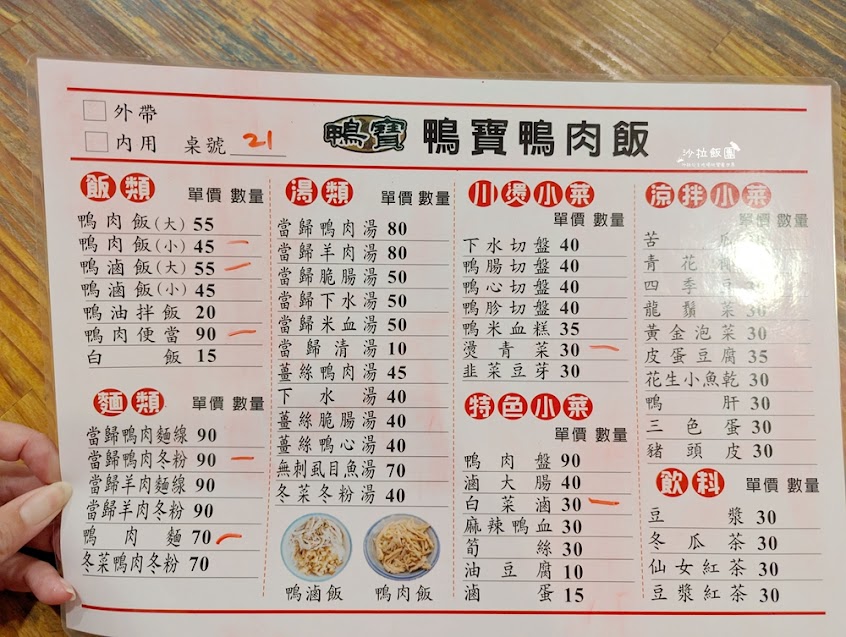 外帶
內用 桌號 21
鴨寶 鴨寶鴨肉飯
沙拉飯團
飯類 單價 數量
鴨肉飯(大) 55
鴨肉飯(小) 45 一
鴨滷飯(大) 55 一
鴨滷飯(小) 45
鴨油拌飯 20
鴨肉便當 90 一
白飯 15
麵類 單價 數量
當歸鴨肉麵線 90
當歸鴨肉冬粉 90 一
當歸羊肉麵線 90
當歸羊肉冬粉 90
鴨肉麵 70 一
冬菜鴨肉冬粉 70
湯類 單價 數量
當歸鴨肉湯 80
當歸羊肉湯 80
當歸脆腸湯 50
當歸下水湯 50
當歸米血湯 50
當歸清湯 10
薑絲鴨肉湯 45
下水湯 40
薑絲脆腸湯 40
薑絲鴨心湯 40
無刺虱目魚湯 70
冬菜冬粉湯 40
鴨滷飯 鴨肉飯
川燙小菜
單價 數量
下水切盤 40
鴨腸切盤 40
鴨心切盤 40
鴨胗切盤 40
鴨米血糕 35
燙青菜 30 一
韭菜豆芽 30
特色小菜
單價 數量
鴨肉盤 90
滷大腸 40
白菜滷 30 一
麻辣鴨血 30
筍絲 30
油豆腐 10
滷蛋 15
涼拌小菜
單價 數量
苦瓜
青花
四季豆
龍鬚菜 30
黃金泡菜 30
皮蛋豆腐 35
花生小魚乾 30
鴨肝 30
三色蛋 30
豬頭皮 30
飲料 單價 數量
豆漿 30
冬瓜茶 30
仙女紅茶 30
豆漿紅茶 30